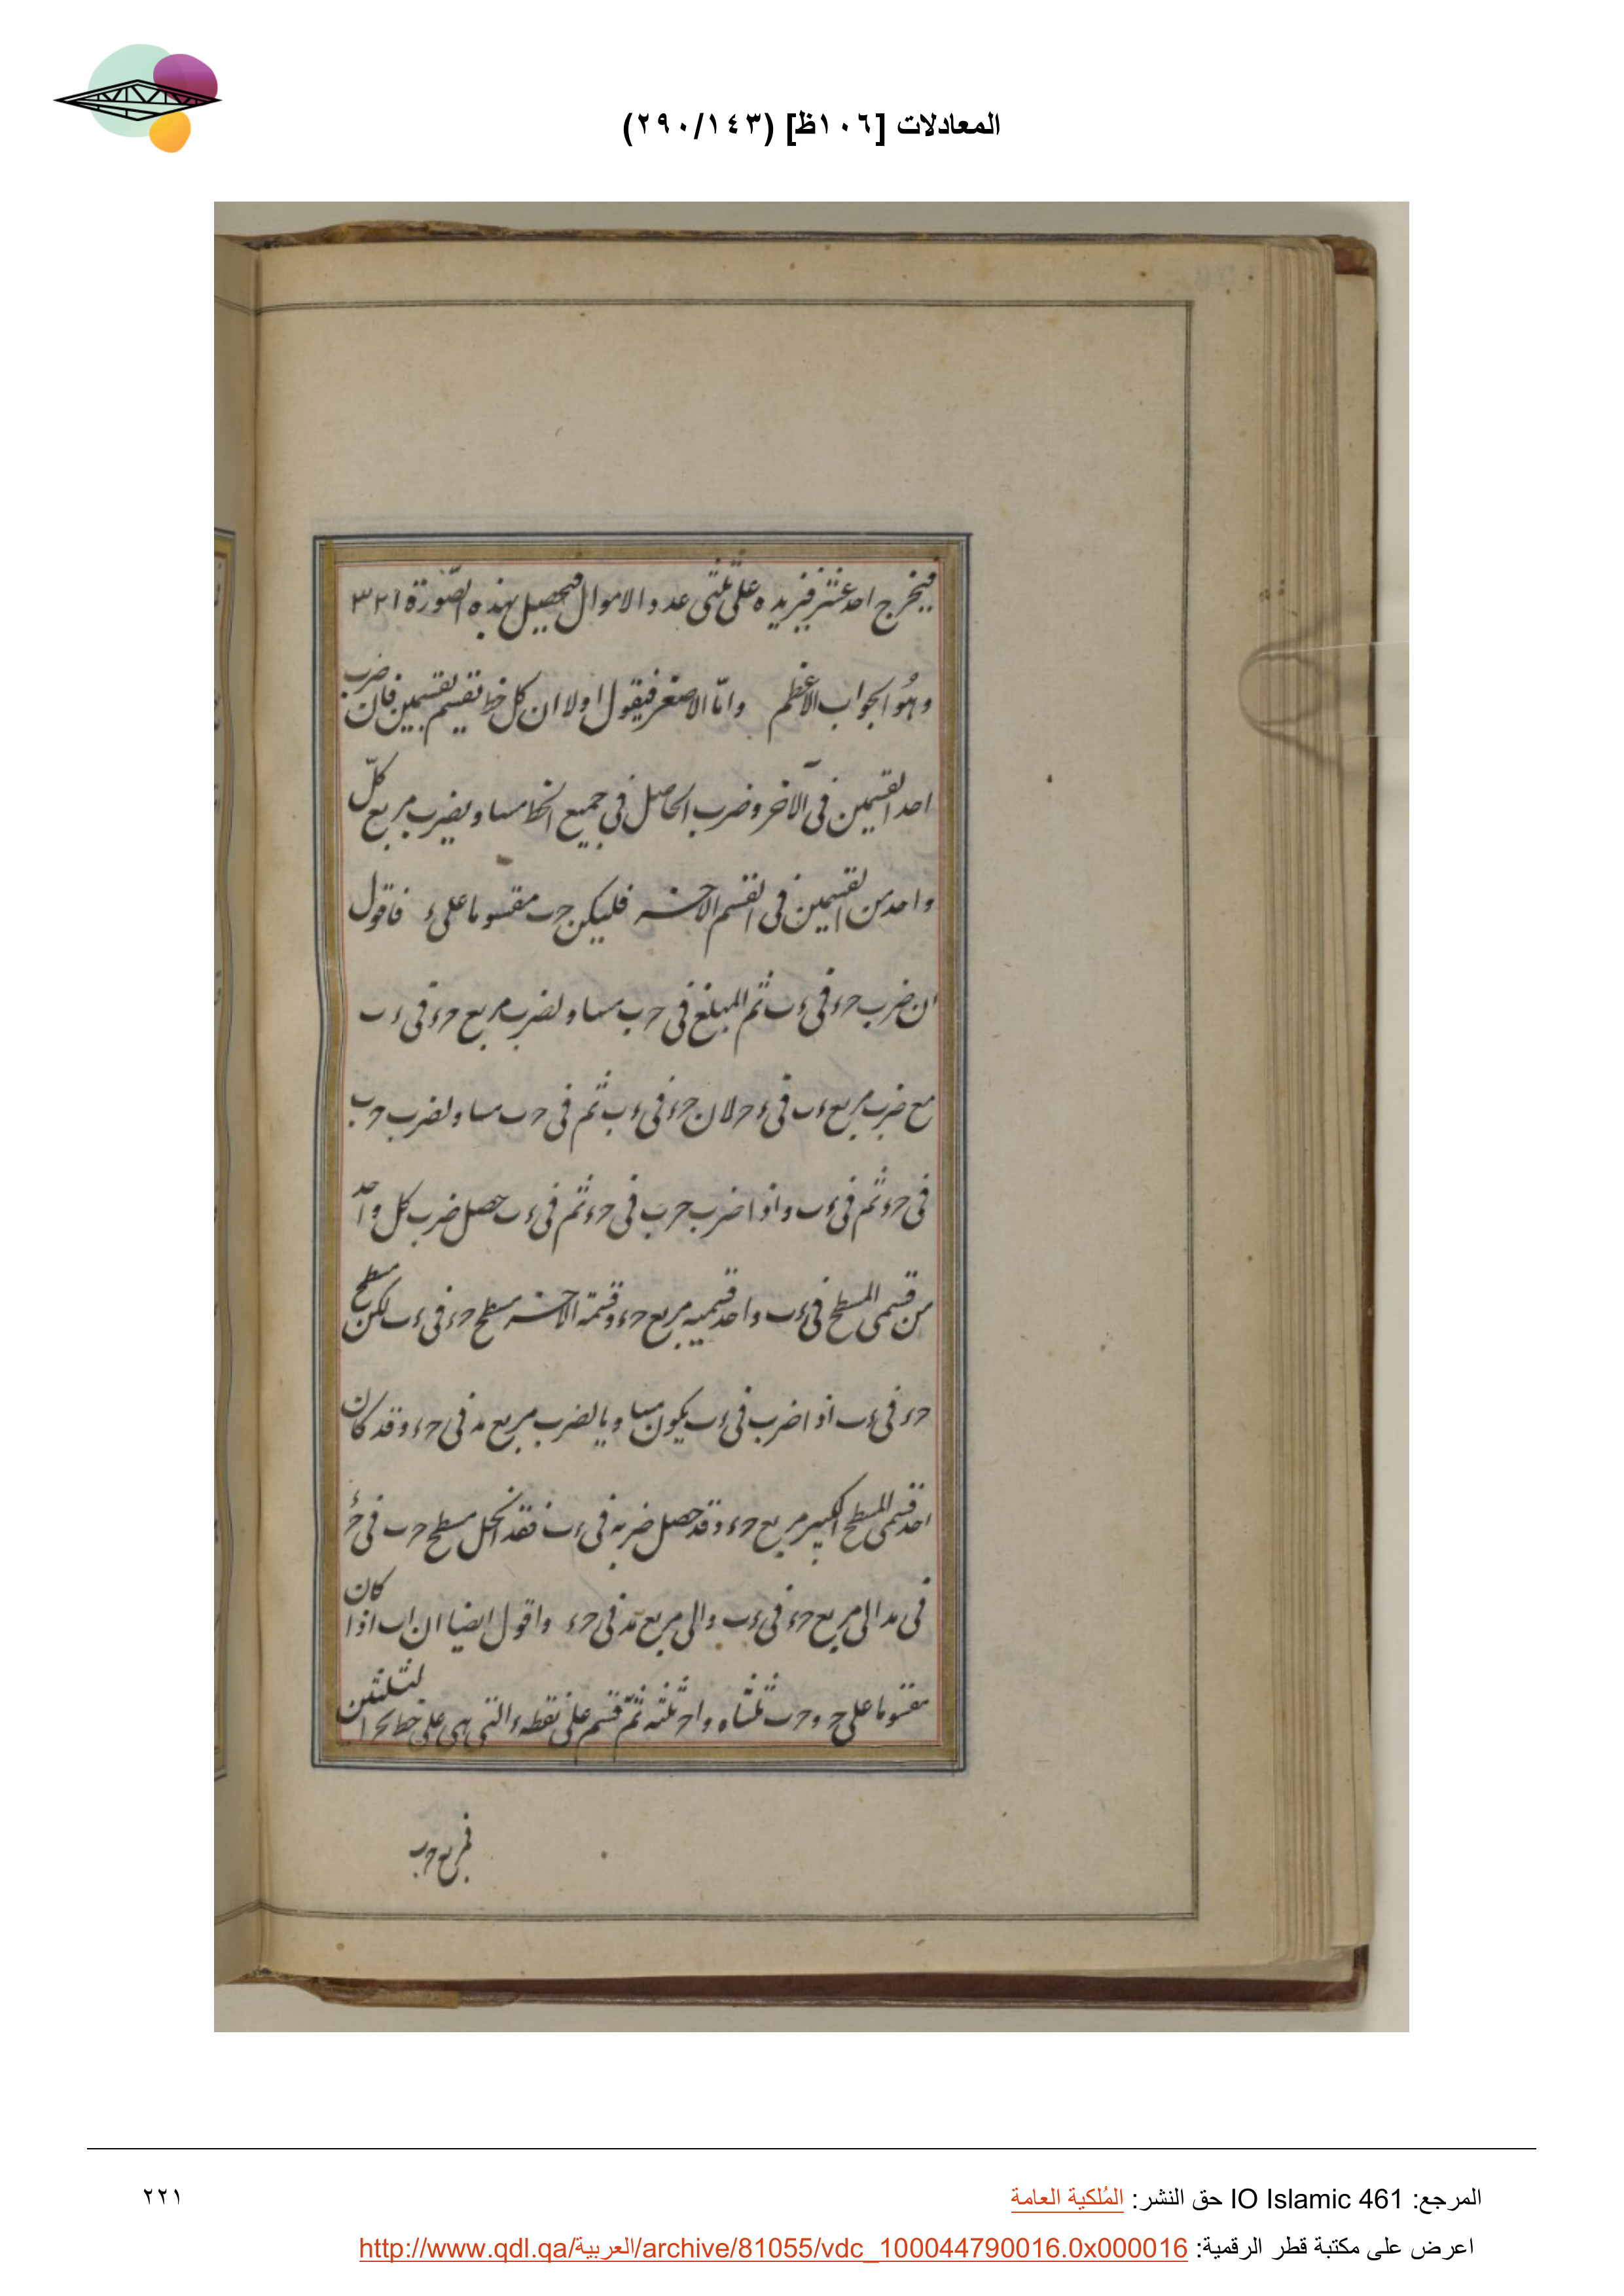 المعادلات [١٠٦ظ] (٢٩٠/١٤٣)
فيخرج احد عشر فنزيده على ثلثى عدد الاموال فيحصل بهذه الصّورة ٣٢١
وهُو الجواب الاعظم وامّا الاصغر فيقول اولا ان كل خط يقسم بقسمين فان ضرب
احد القسمين فى الآخر وضرب الحاصل فى جميع الخط مساو بضرب مربع كلّ
واحد من القسمين فى القسم الاخر فليكن حب مقسوما على ء فاقول
ان ضرب حء فى ءب ثم المبلغ فى حب مساو لضرب مربع حء فى ءب
مع ضرب مربع ءب فى ءح لان حء فى ءب ثم فى حب مساو لضرب حب
فى حء ثم فى ءب واذا ضرب حب فى حء ثم فى ءب حصل ضرب كل واحد
من قسمى المسطح فى ءب واحد قسميه مربع حء وقسمة الاخر مسطح حء فى ءب لكن مسطح
حء فى ءب اذا ضرب فى ءب يكون مساويا لضرب مربع مد فى حء وقد كان
احد قسمى المسطح الكبير مربع حء وقد حصل ضربه فى ءب فقد انحل مسطح حب فى حء
فى مد الى مربع حء فى ءب والى مربع مد فى حء واقول ايضا ان اب اذا كان
مقسوما على ح وحب ثلثاه واح ثلثه ثمّ قسم على نقطة ء التى هى على خط
فمربع حب
المرجع: IO Islamic 461 حق النشر: المُلكية العامة
٢٢١
اعرض على مكتبة قطر الرقمية: http://www.qdl.qa/العربية/archive/81055/vdc_100044790016.0x000016